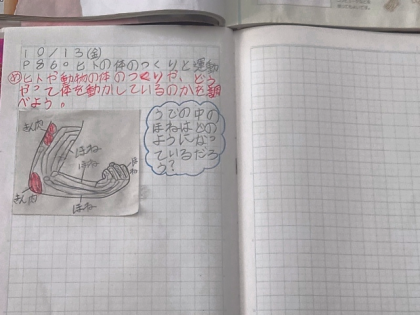 10/13(金)
P86○ヒトの体のつくりと運動
めヒトや動物の体のつくりや、どう
やって体を動かしているのかを調
べよう。
うでの中の
ほねはどの
ようになっ
ているだろ
う?
きん肉
ほね
ほね
ほね
きん肉
ほね